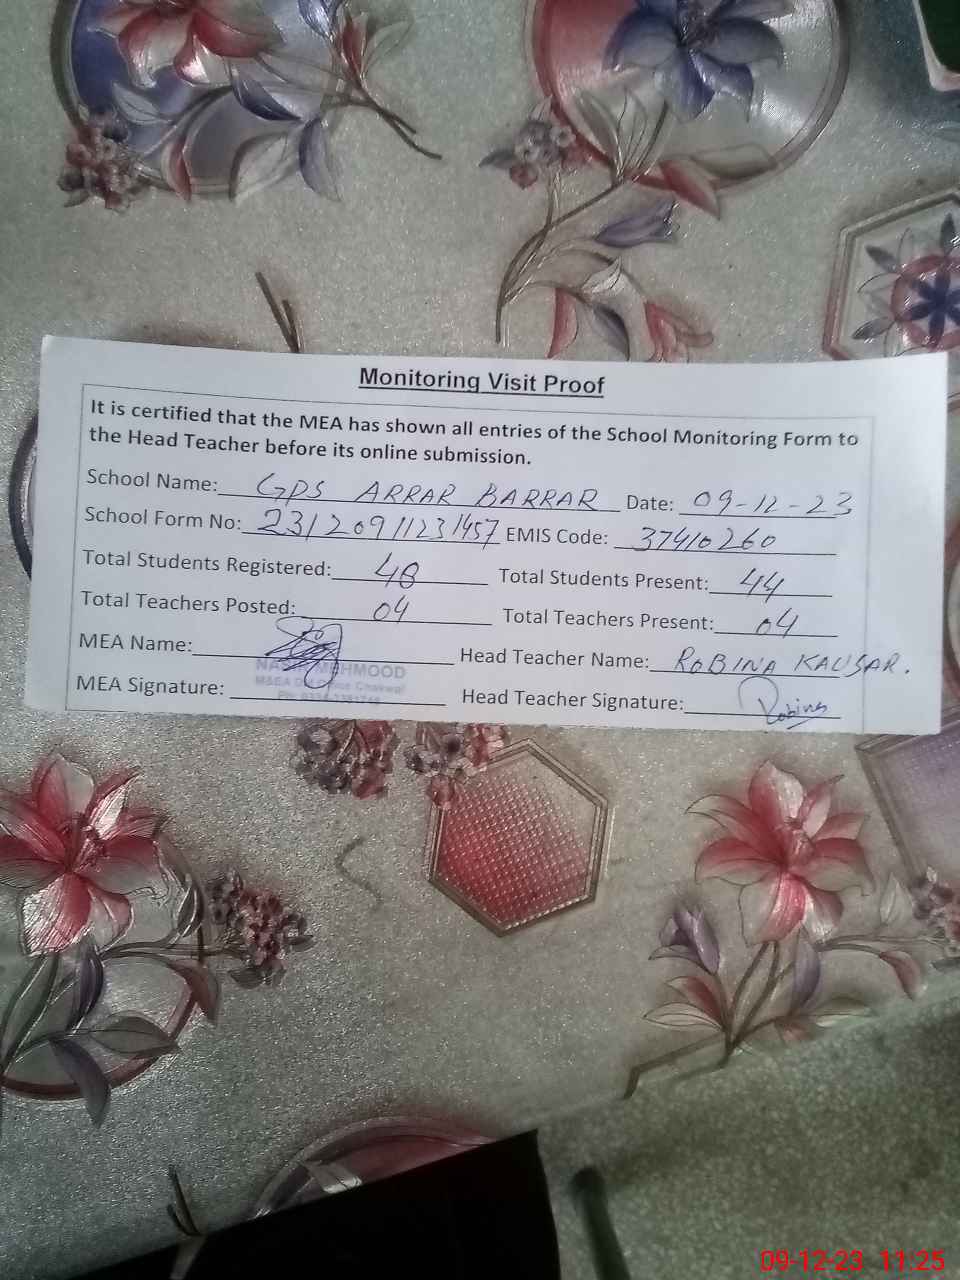 Monitoring Visit Proof
It is certified that the MEA has shown all entries of the School Monitoring Form to
the Head Teacher before its online submission.
School Name: GPS ARRAR BARRAR Date: 09-12-23
School Form No: 23120911231457 EMIS Code: 37410260
Total Students Registered: 48 Total Students Present: 44
Total Teachers Posted: 04 Total Teachers Present: 04
MEA Name: Head Teacher Name: ROBINA KAUSAR.
MEHMOOD
M&EA Chakwal
MEA Signature: Head Teacher Signature: Robina
09-12-23 11:25